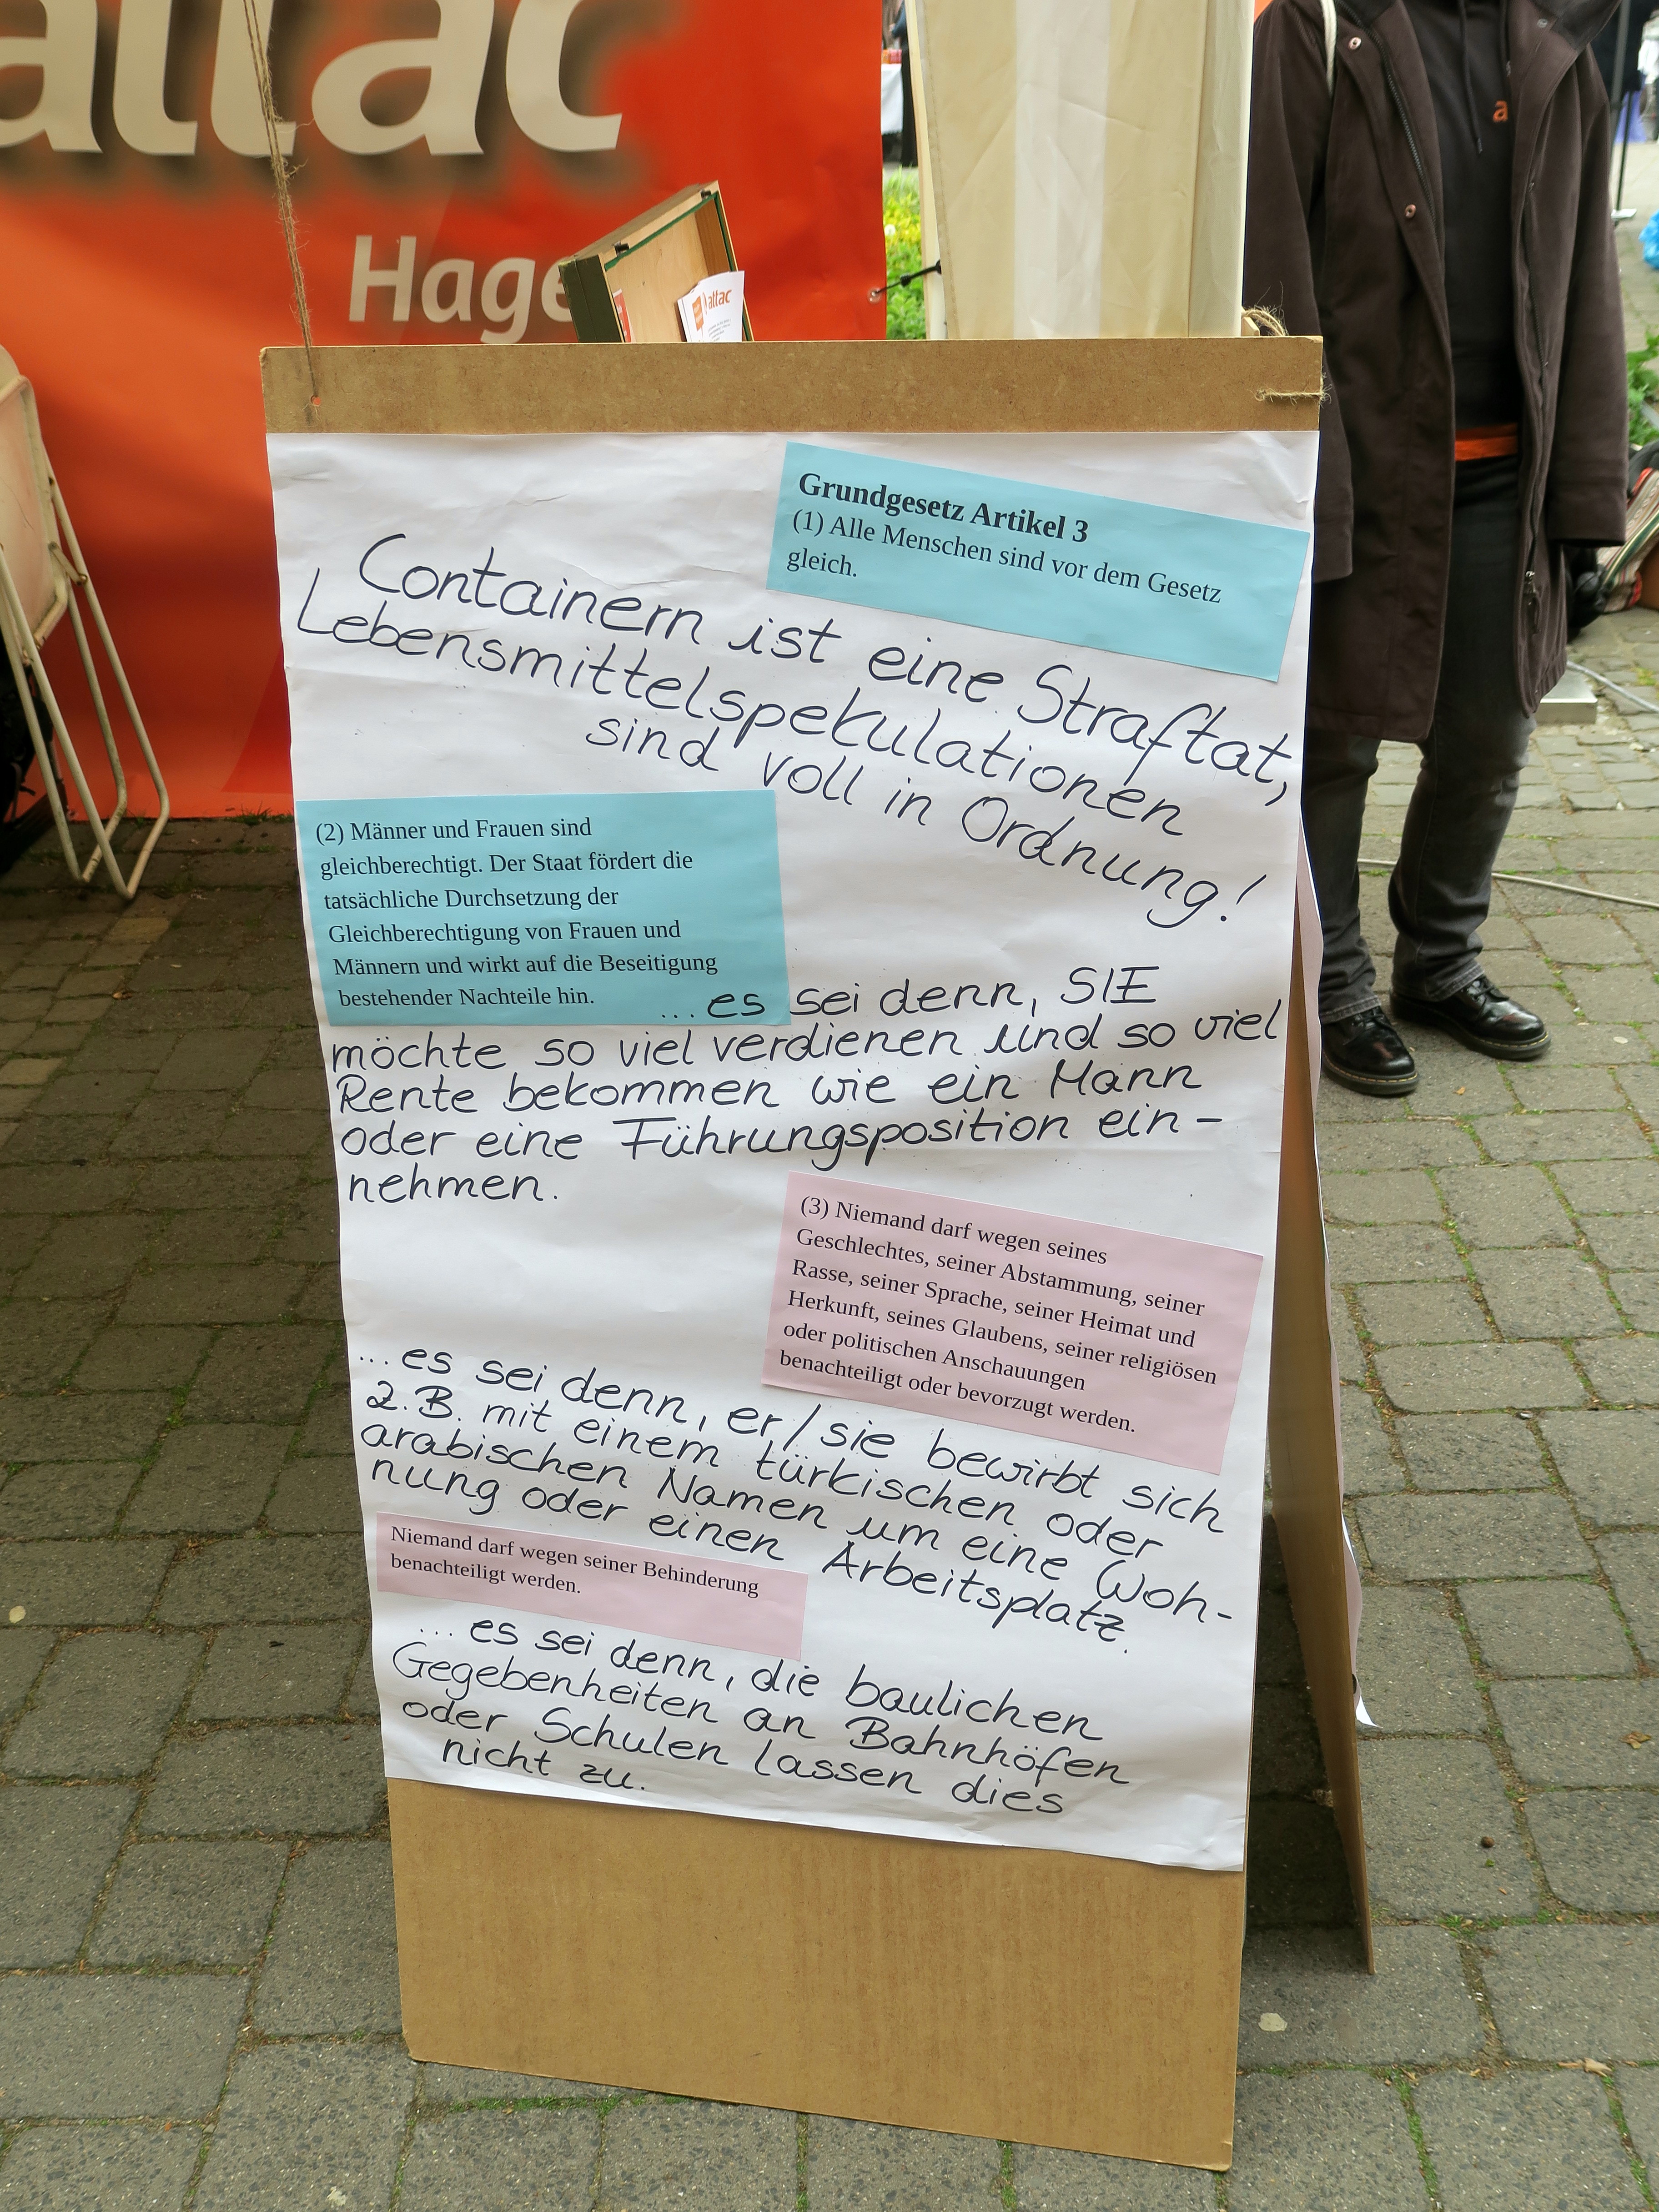 attac
Hage
attac
a
Grundgesetz Artikel 3
(1) Alle Menschen sind vor dem Gesetz
gleich.
Containern ist eine Straftat,
Lebensmittelspekulationen
sind voll in Ordnung!
(2) Männer und Frauen sind
gleichberechtigt. Der Staat fördert die
tatsächliche Durchsetzung der
Gleichberechtigung von Frauen und
Männern und wirkt auf die Beseitigung
bestehender Nachteile hin.
... es sei denn, SIE
möchte so viel verdienen und so viel
Rente bekommen wie ein Mann
oder eine Führungsposition ein-
nehmen.
(3) Niemand darf wegen seines
Geschlechtes, seiner Abstammung, seiner
Rasse, seiner Sprache, seiner Heimat und
Herkunft, seines Glaubens, seiner religiösen
oder politischen Anschauungen
benachteiligt oder bevorzugt werden.
... es sei denn, er/sie bewirbt sich
z.B. mit einem türkischen oder
arabischen Namen um eine Woh-
nung oder einen Arbeitsplatz.
Niemand darf wegen seiner Behinderung
benachteiligt werden.
... es sei denn, die baulichen
Gegebenheiten an Bahnhöfen
oder Schulen lassen dies
nicht zu.